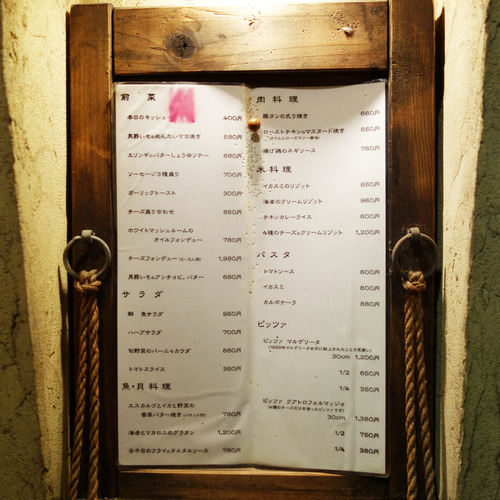 前 菜
本日のキッシュ 400円
男爵いものめんたいマヨ焼き 580円
エリンギのバターしょうゆソテー 680円
ソーセージ3種盛り 700円
ガーリックトースト 300円
チーズ盛り合わせ 850円
ホワイトマッシュルームの
オイルフォンデュー 780円
チーズフォンデュー 1,980円
男爵いものアンチョビ、バター 680円
サラダ
鮮 魚サラダ 950円
ハーブサラダ 700円
旬野菜のバーニャカウダ 880円
トマトスライス 350円
魚・貝料理
エスカルゴとイカと野菜の
香草バター焼き 780円
海老とマカロニのグラタン 1,200円
平目のフライのタルタルソース 780円
肉料理
豚タンの炙り焼き 680円
ローストチキンのマスタード焼き 850円
(タイムとローズマリー風味)
揚げ鶏のネギソース 780円
米料理
イカスミのリゾット 850円
海老のクリームリゾット 980円
チキンカレーライス 800円
4種のチーズのクリームリゾット 1,200円
パスタ
トマトソース 800円
イカスミ 800円
カルボナーラ 880円
ピッツァ
ピッツァ マルゲリータ
30cm 1,200円
1/2 650円
1/4 350円
ピッツァ クアトロフォルマッジォ
(4種のチーズだけを使ったピッツァです)
30cm 1,380円
1/2 750円
1/4 380円